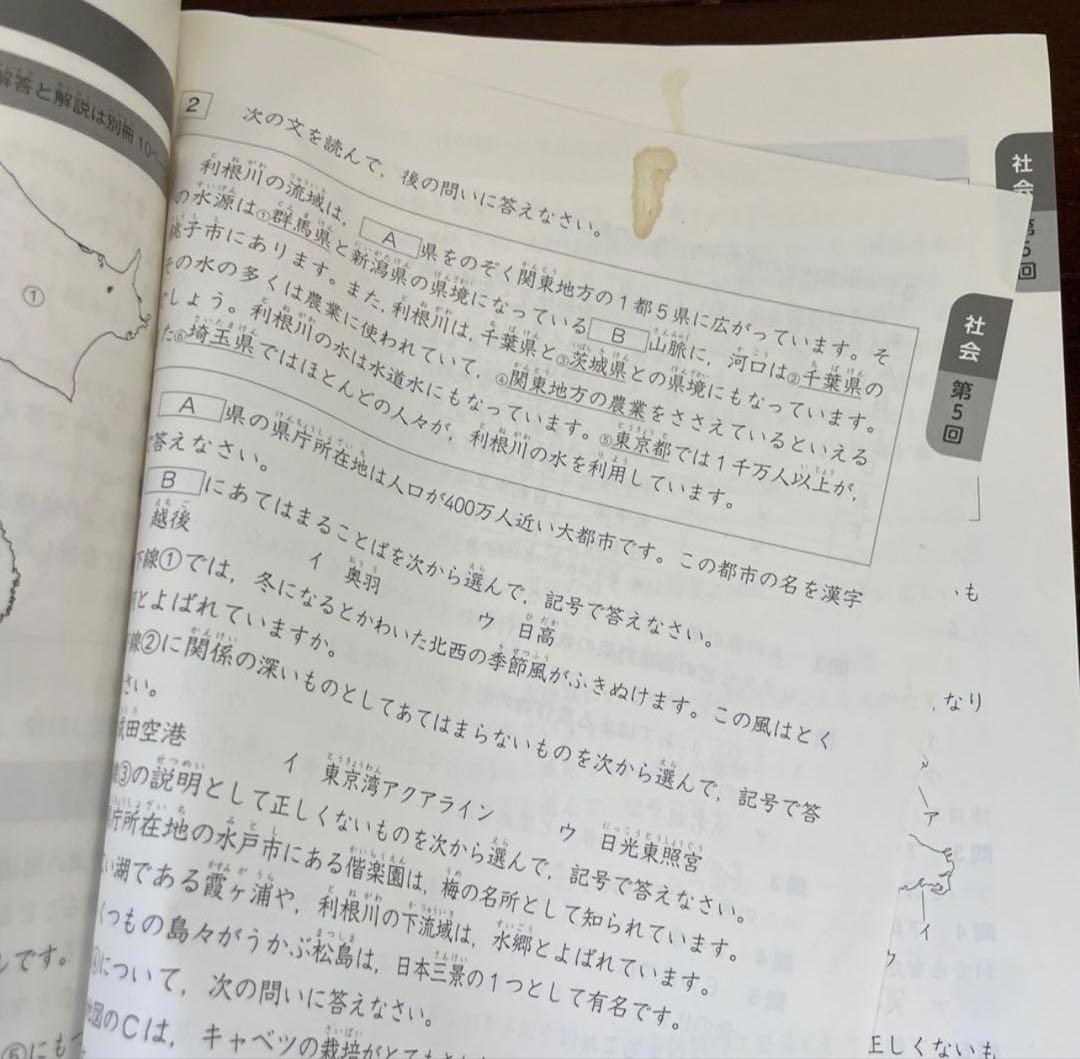 解答と解説は別冊10ペー
①
2 次の文を読んで，後の問いに答えなさい。
利根川の流域は， A 県をのぞく関東地方の1都5県に広がっています。そ
の水源は①群馬県と新潟県の県境になっている B 山脈に，河口は②千葉県の
銚子市にあります。また，利根川は，千葉県と③茨城県との県境にもなっています。
その水の多くは農業に使われていて，④関東地方の農業をささえているといえる
でしょう。利根川の水は水道水にもなっています。⑤東京都では1千万人以上が，
た⑥埼玉県ではほとんどの人々が，利根川の水を利用しています。
A 県の県庁所在地は人口が400万人近い大都市です。この都市の名を漢字
で答えなさい。
B にあてはまることばを次から選んで，記号で答えなさい。
越後 イ 奥羽 ウ 日高
下線①では，冬になるとかわいた北西の季節風がふきぬけます。この風はとく
とよばれていますか。
線②に関係の深いものとしてあてはまらないものを次から選んで，記号で答
さい。
成田空港 イ 東京湾アクアライン ウ 日光東照宮
線③の説明として正しくないものを次から選んで，記号で答えなさい。
県庁所在地の水戸市にある偕楽園は，梅の名所として知られています。
い湖である霞ヶ浦や，利根川の下流域は，水郷とよばれています。
くつもの島々がうかぶ松島は，日本三景の1つとして有名です。
④について，次の問いに答えなさい。
地図のCは，キャベツの栽培がとても
社会
第5回
社会
第5回
も
なり
ア
イ
ウ
正しくないも
です。
⑤にも